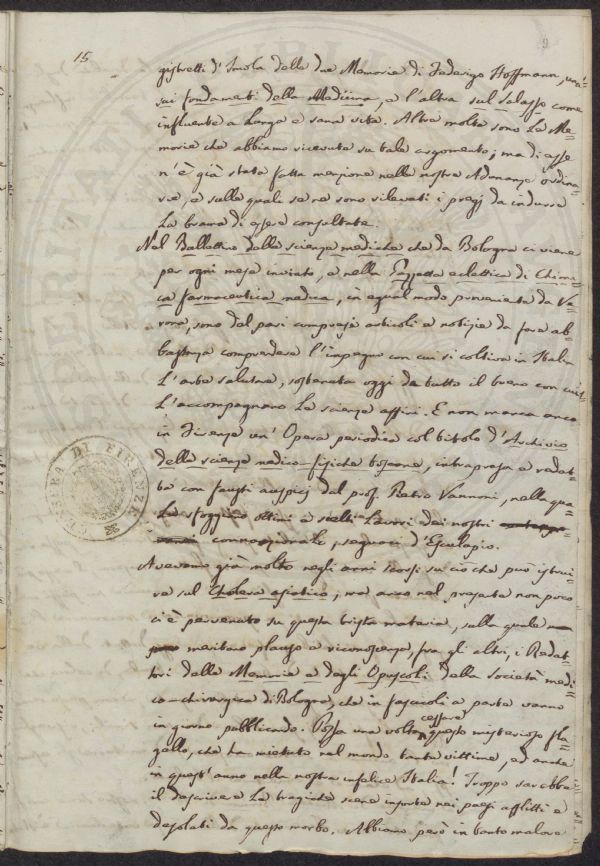 15
9
gistretti d'Imola delle due Memorie di Federigo Hoffmann, una
sui fondamenti della Medicina, e l'altra sul Salasso come
influente a lunga e sana vita. Altre molte sono le Me-
morie che abbiamo ricevute su tale argomento; ma di esse
n'è già stata fatta menzione nelle nostre Adunanze ordina-
rie, e sulle quali se ne sono rilevati i pregj da indurre
la brama di essere consultate.
Nel Bullettino delle scienze mediche che da Bologna ci viene
per ogni mese inviato, e nella Gazzetta eclettica di Chimi-
ca farmaceutica medica, in egual modo proveniente da Ve-
rona, sono del pari compresi articoli e notizie da fare ab-
bastanza comprendere l'impegno con cui si coltiva in Italia
l'arte salutare, sostenuta oggi da tutto il buono con cui
l'accompagnano le scienze affini. E non manca anco
in Firenze un'Opera periodica col titolo d'Archivio
delle scienze medico-fisiche toscane, intrapresa e redat-
ta con fausti auspicj dal prof. Pietro Vannoni, nella qua-
le sfoggiano ottimi e scelti lavori dei nostri
connazionali, seguaci d'Esculapio.
Avevamo già molto negli anni scorsi su ciò che può istrui-
re sul Cholera asiatico; ma anco nel presente non poco
ci è pervenuto su questa trista materia, sulla quale
meritano plauso e riconoscenza, fra gli altri, i Redat-
tori delle Memorie e degli Opuscoli della Società medi-
co-chirurgica di Bologna, che in fascicoli a parte vanno
in giorno pubblicando. Possa una volta cessare questo misterioso fla-
gello, che ha mietute nel mondo tante vittime, ed anche
in quest'anno nella nostra infelice Italia! Troppo sarebbe
il descrivere le tragiche scene insorte nei paesi afflitti e
desolati da questo morbo. Abbiamo però in tanto malore
TERA DI FIRENZE